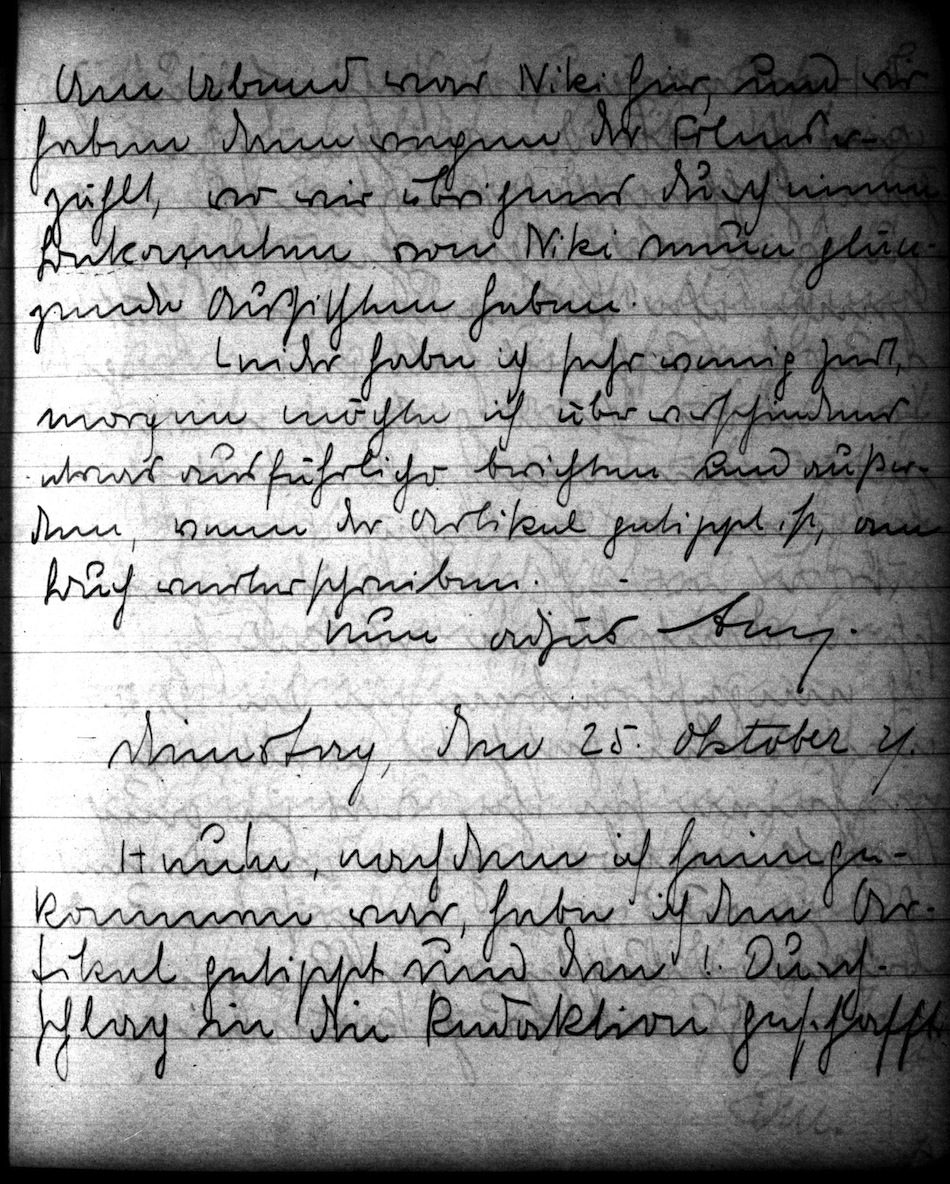 Am Abend war Niki hier, und wir
haben dann wegen der Films er-
zählt, wo wir übrigens durch einen
Bekannten von Niki neuen glän-
zende Aussichten haben.
Leider habe ich sehr wenig Zeit,
morgen möchte ich über verschiedenes
etwas ausführlicher berichten und außer-
dem, wenn der Artikel getippt ist, am
Buch weiterschreiben.
Nun adjüs
Dienstag, den 25. Oktober
Heute, nachdem ich heimge-
kommen war, habe ich den Ar-
tikel getippt und den 1. Durch-
schlag in die Redaktion geschafft.